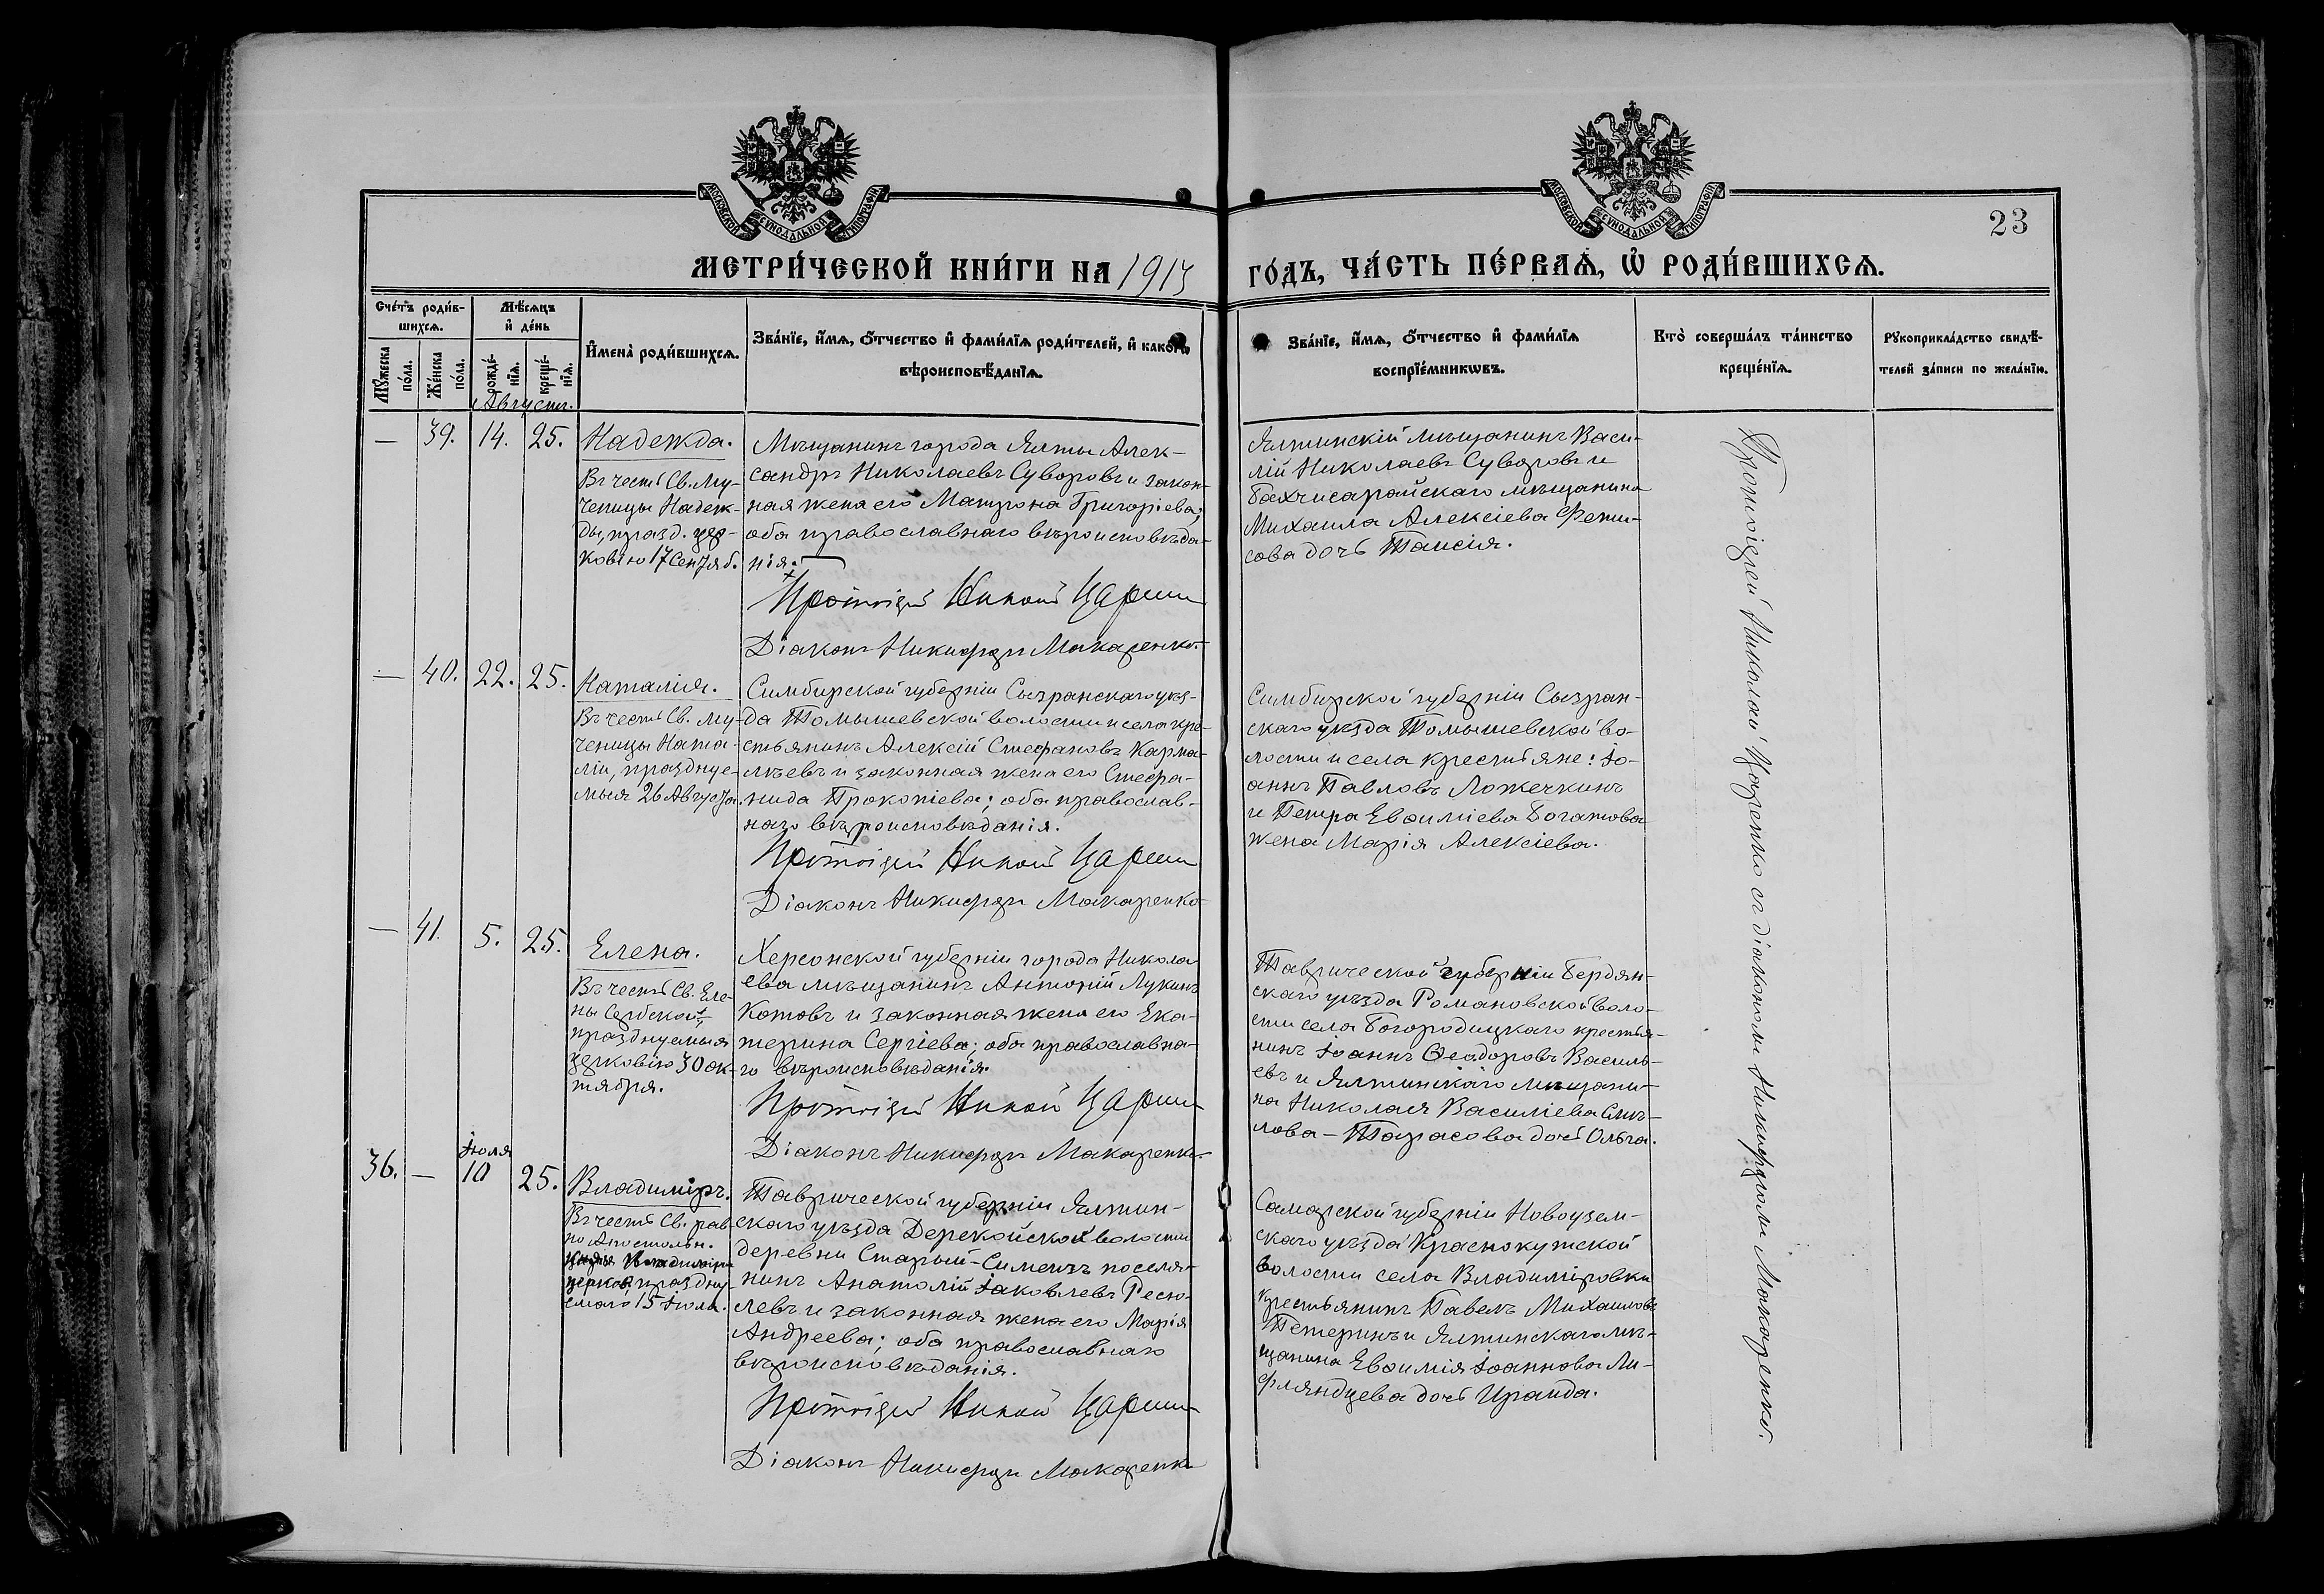 МОСКОВСКОЙ СУНОДАЛЬНОЙ ТИПОГРАФІИ
МОСКОВСКОЙ СУНОДАЛЬНОЙ ТИПОГРАФІИ
23
МЕТРИ́ЧЕСКОЙ КНИ́ГИ НА 1913 ГО́ДЪ, ЧА́СТЬ ПЕ́РВАѦ, Ѡ РОДИ́ВШИХСѦ.
Сче́тъ роди́в-
шихсѧ.
Мꙋ́жеска по́ла.
Же́нска по́ла.
Мѣ́сѧцъ
и҆ де́нь
рожде́-
нїѧ.
креще́-
нїѧ.
И҆мена̀ роди́вшихсѧ.
Зва́нїе, и҆́мѧ, ѻ҆́тчество и҆ фами́лїѧ роди́телей, и҆ како́гѡ
вѣроисповѣ́данїѧ.
Зва́нїе, и҆́мѧ, ѻ҆́тчество и҆ фами́лїѧ
воспрїе́мникѡвъ.
Кто̀ соверша́лъ та́инство
креще́нїѧ.
Рꙋкоприкла́дство свидѣ́-
телей за́писи по жела́нїю.
Августъ.
— 39. 14. 25.
Надежда.
Въ честь Св. Му-
ченицы Надеж-
ды, празд. цер-
ковію 17 Сентяб.
Мѣщанинъ города Ялты Алек-
сандръ Николаевъ Суворовъ и закон-
ная жена его Матрона Григоріева;
оба православнаго вѣроисповѣда-
нія.
Протоіерей Николай Царенко
Діаконъ Никифоръ Макаренко.
Ялтинскій мѣщанинъ Васи-
лій Николаевъ Суворовъ и
Бахчисарайскаго мѣщанина
Михаила Алексіева Фети-
сова дочь Таисія.
Протоіерей Николай Царенко съ діакономъ Никифоромъ Макаренко.
— 40. 22. 25.
Наталія.
Въ честь Св. Му-
ченицы Ната-
ліи, празднуе-
мыя 26 Августа.
Симбирской губерніи Сызранскаго уѣз-
да Томышевской волости и села кре-
стьянинъ Алексій Стефановъ Карма-
лѣевъ и законная жена его Стефа-
нида Прокопіева; оба православ-
наго вѣроисповѣданія.
Протоіерей Николай Царенко
Діаконъ Никифоръ Макаренко
Симбирской губерніи Сызран-
скаго уѣзда Томышевской во-
лости и села крестьяне: Іо-
аннъ Павловъ Ложечкинъ
и Петра Евѳиміева Богатова
жена Марія Алексіева.
— 41. 5. 25.
Елена.
Въ честь Св. Еле-
ны Сербской,
празднуемыя
церковію 30 Ок-
тября.
Херсонской губерніи города Никола-
ева мѣщанинъ Антоній Лукинъ
Котовъ и законная жена его Ека-
терина Сергіева; оба православна-
го вѣроисповѣданія.
Протоіерей Николай Царенко
Діаконъ Никифоръ Макаренко
Таврической губерніи Бердян-
скаго уѣзда Романовской воло-
сти села Богородицкаго крестья-
нинъ Іоаннъ Ѳеодоровъ Василь-
евъ и Ялтинскаго мѣщани-
на Николая Василіева Смѣ-
лова-Тарасова дочь Ольга.
Іюля
36. — 10 25.
Владиміръ.
Въ честь Св. рав-
но Апостольн.
князя Владиміра
церков. праздну-
емаго 15 Іюля.
Таврической губерніи Ялтин-
скаго уѣзда Дерекойской волости
деревни Старый-Сименъ поселя-
нинъ Анатолій Іаковлевъ Ресю-
левъ и законная жена его Марія
Андреева; оба православнаго
вѣроисповѣданія.
Протоіерей Николай Царенко
Діаконъ Никифоръ Макаренко
Самарской губерніи Новоузен-
скаго уѣзда Краснокутской
волости села Владиміровки
крестьянинъ Павелъ Михаиловъ
Тетеринъ и Ялтинскаго мѣ-
щанина Евѳимія Іоаннова Ли-
фляндцева дочь Ираида.